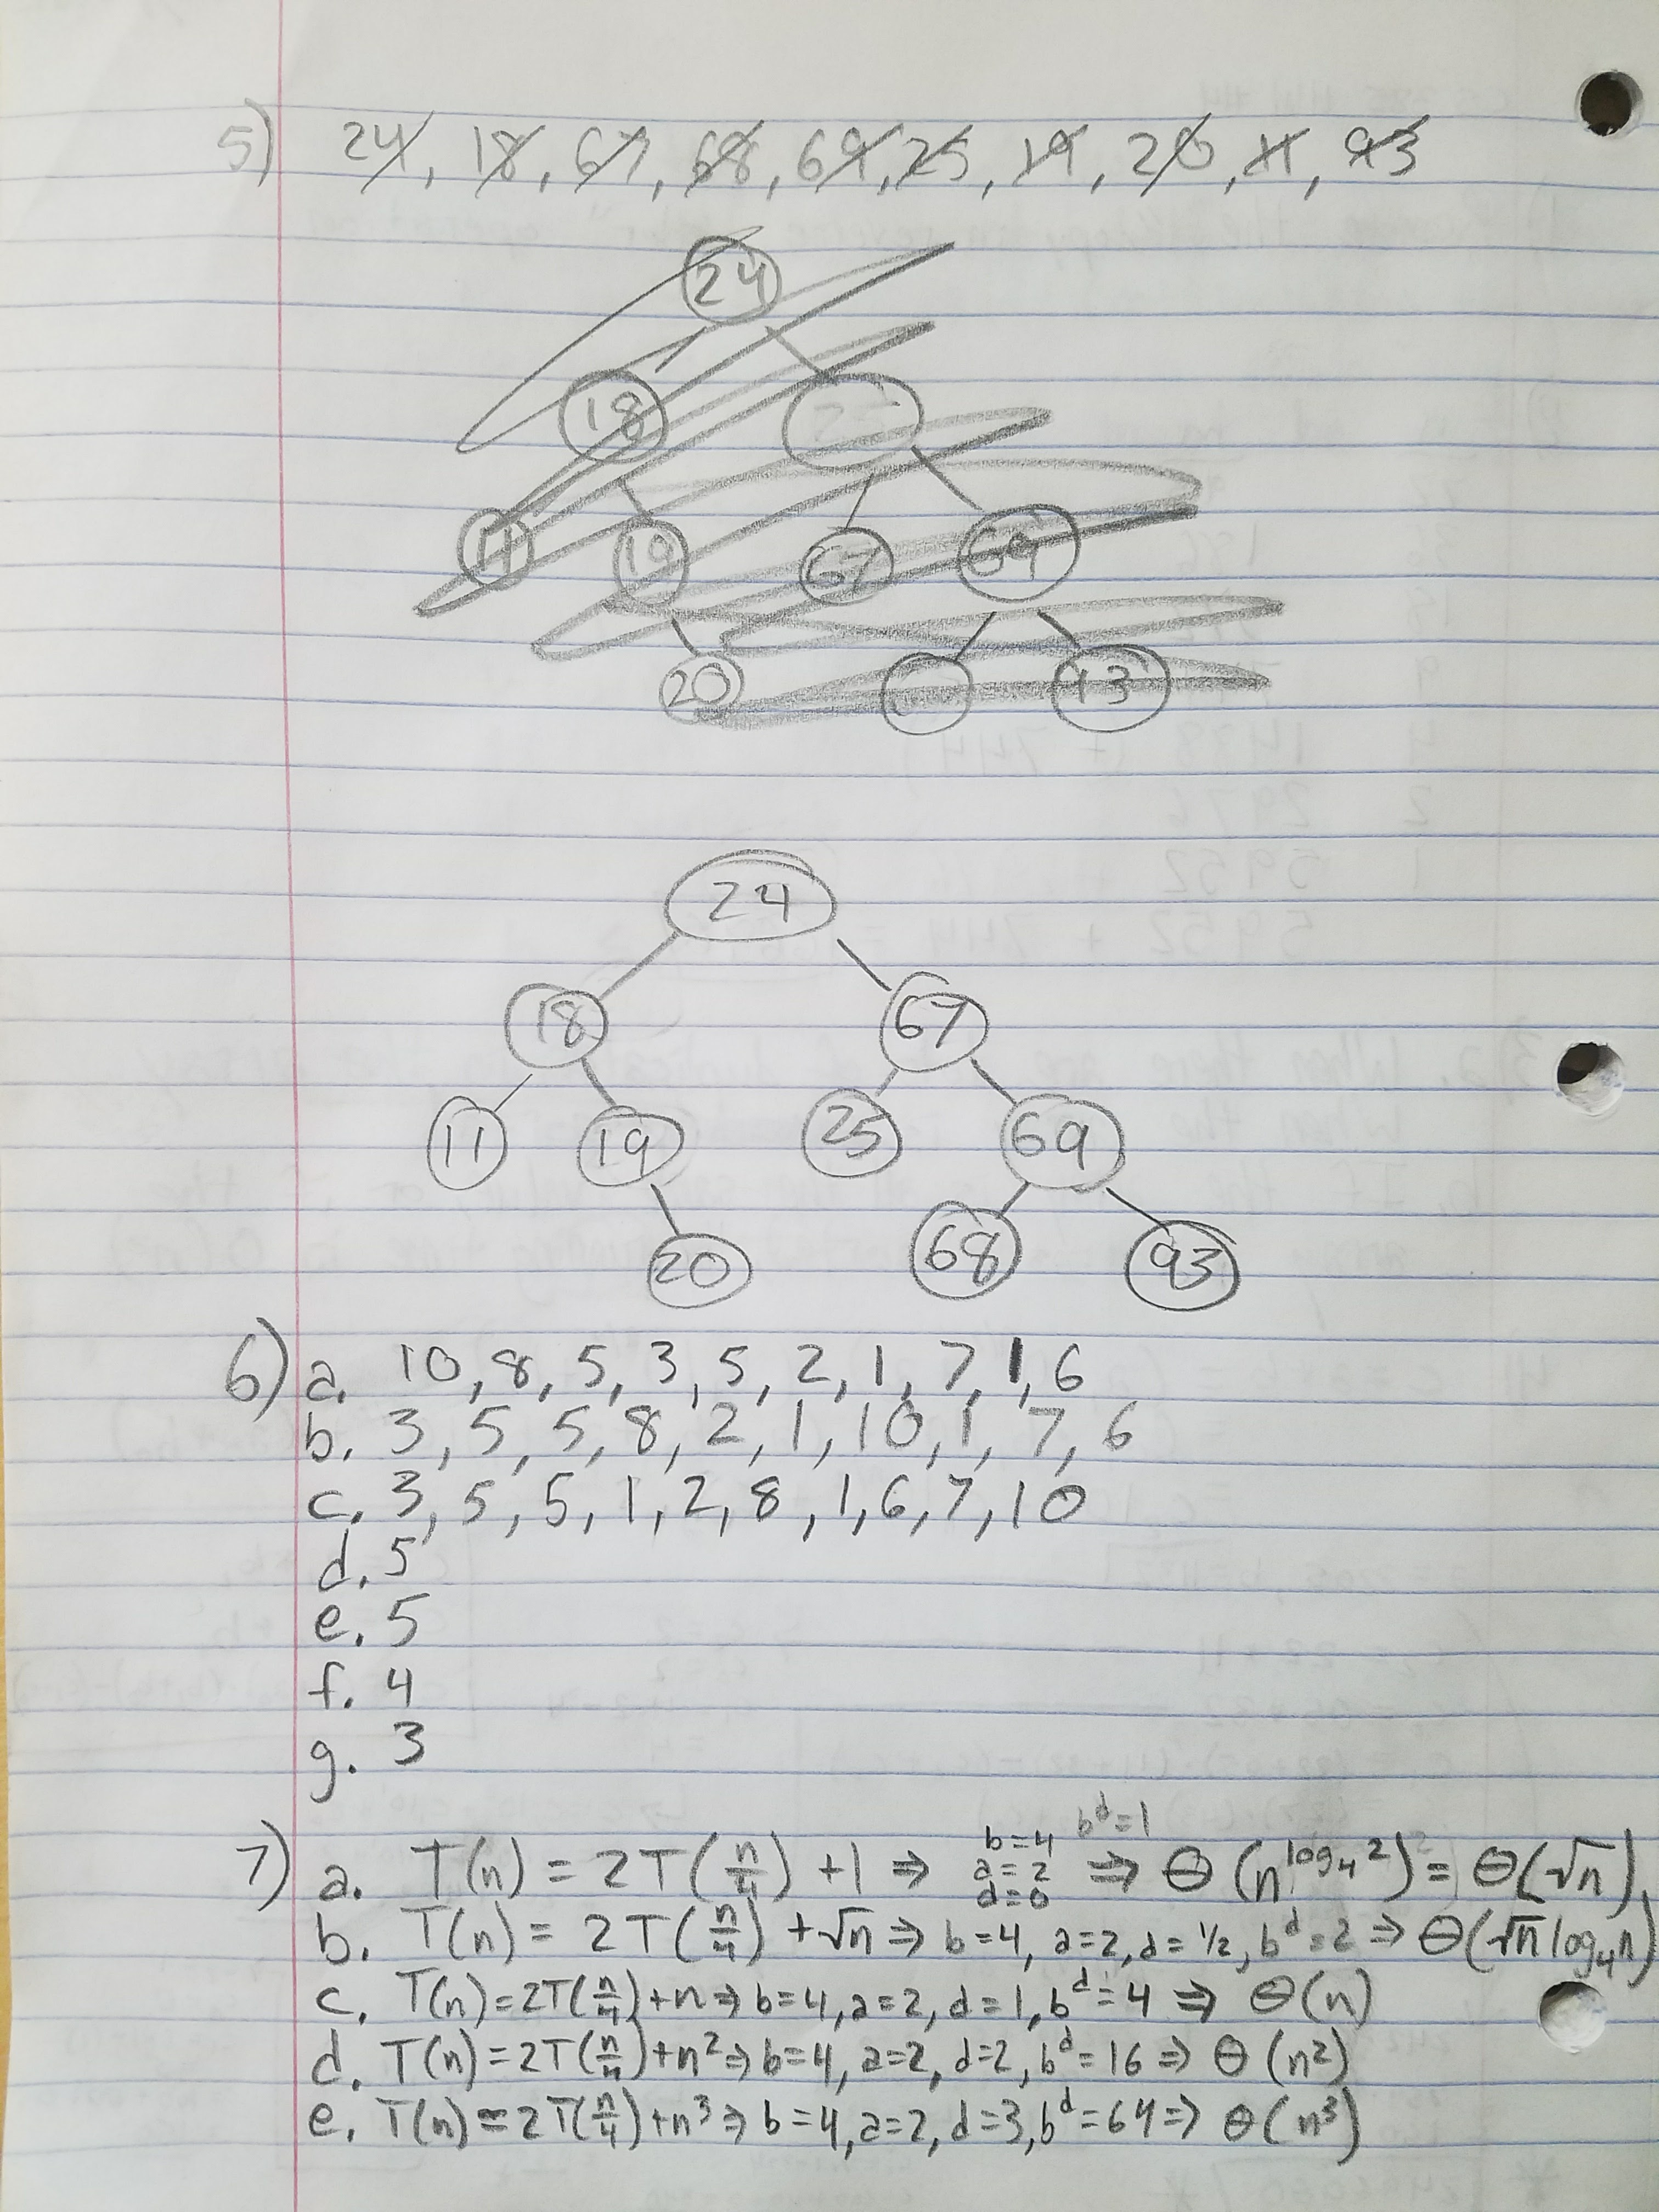 5) 24, 18, 67, 68, 69, 25, 19, 20, 11, 93
24
18
11 19 67 69
20 93
24
18 67
11 19 25 69
20 68 93
6) a. 10, 8, 5, 3, 5, 2, 1, 7, 1, 6
b. 3, 5, 5, 8, 2, 1, 10, 1, 7, 6
c. 3, 5, 5, 1, 2, 8, 1, 6, 7, 10
d. 5
e. 5
f. 4
g. 3
7) a. T(n) = 2T(n/4) + 1 ⇒ b=4 a=2 d=0 b^d=1 ⇒ Θ(n^log₄2) = Θ(√n)
b. T(n) = 2T(n/4) + √n ⇒ b=4, a=2, d=1/2, b^d=2 ⇒ Θ(√n log₄n)
c. T(n)=2T(n/4)+n ⇒ b=4, a=2, d=1, b^d=4 ⇒ Θ(n)
d. T(n)=2T(n/4)+n² ⇒ b=4, a=2, d=2, b^d=16 ⇒ Θ(n²)
e. T(n)=2T(n/4)+n³ ⇒ b=4, a=2, d=3, b^d=64 ⇒ Θ(n³)